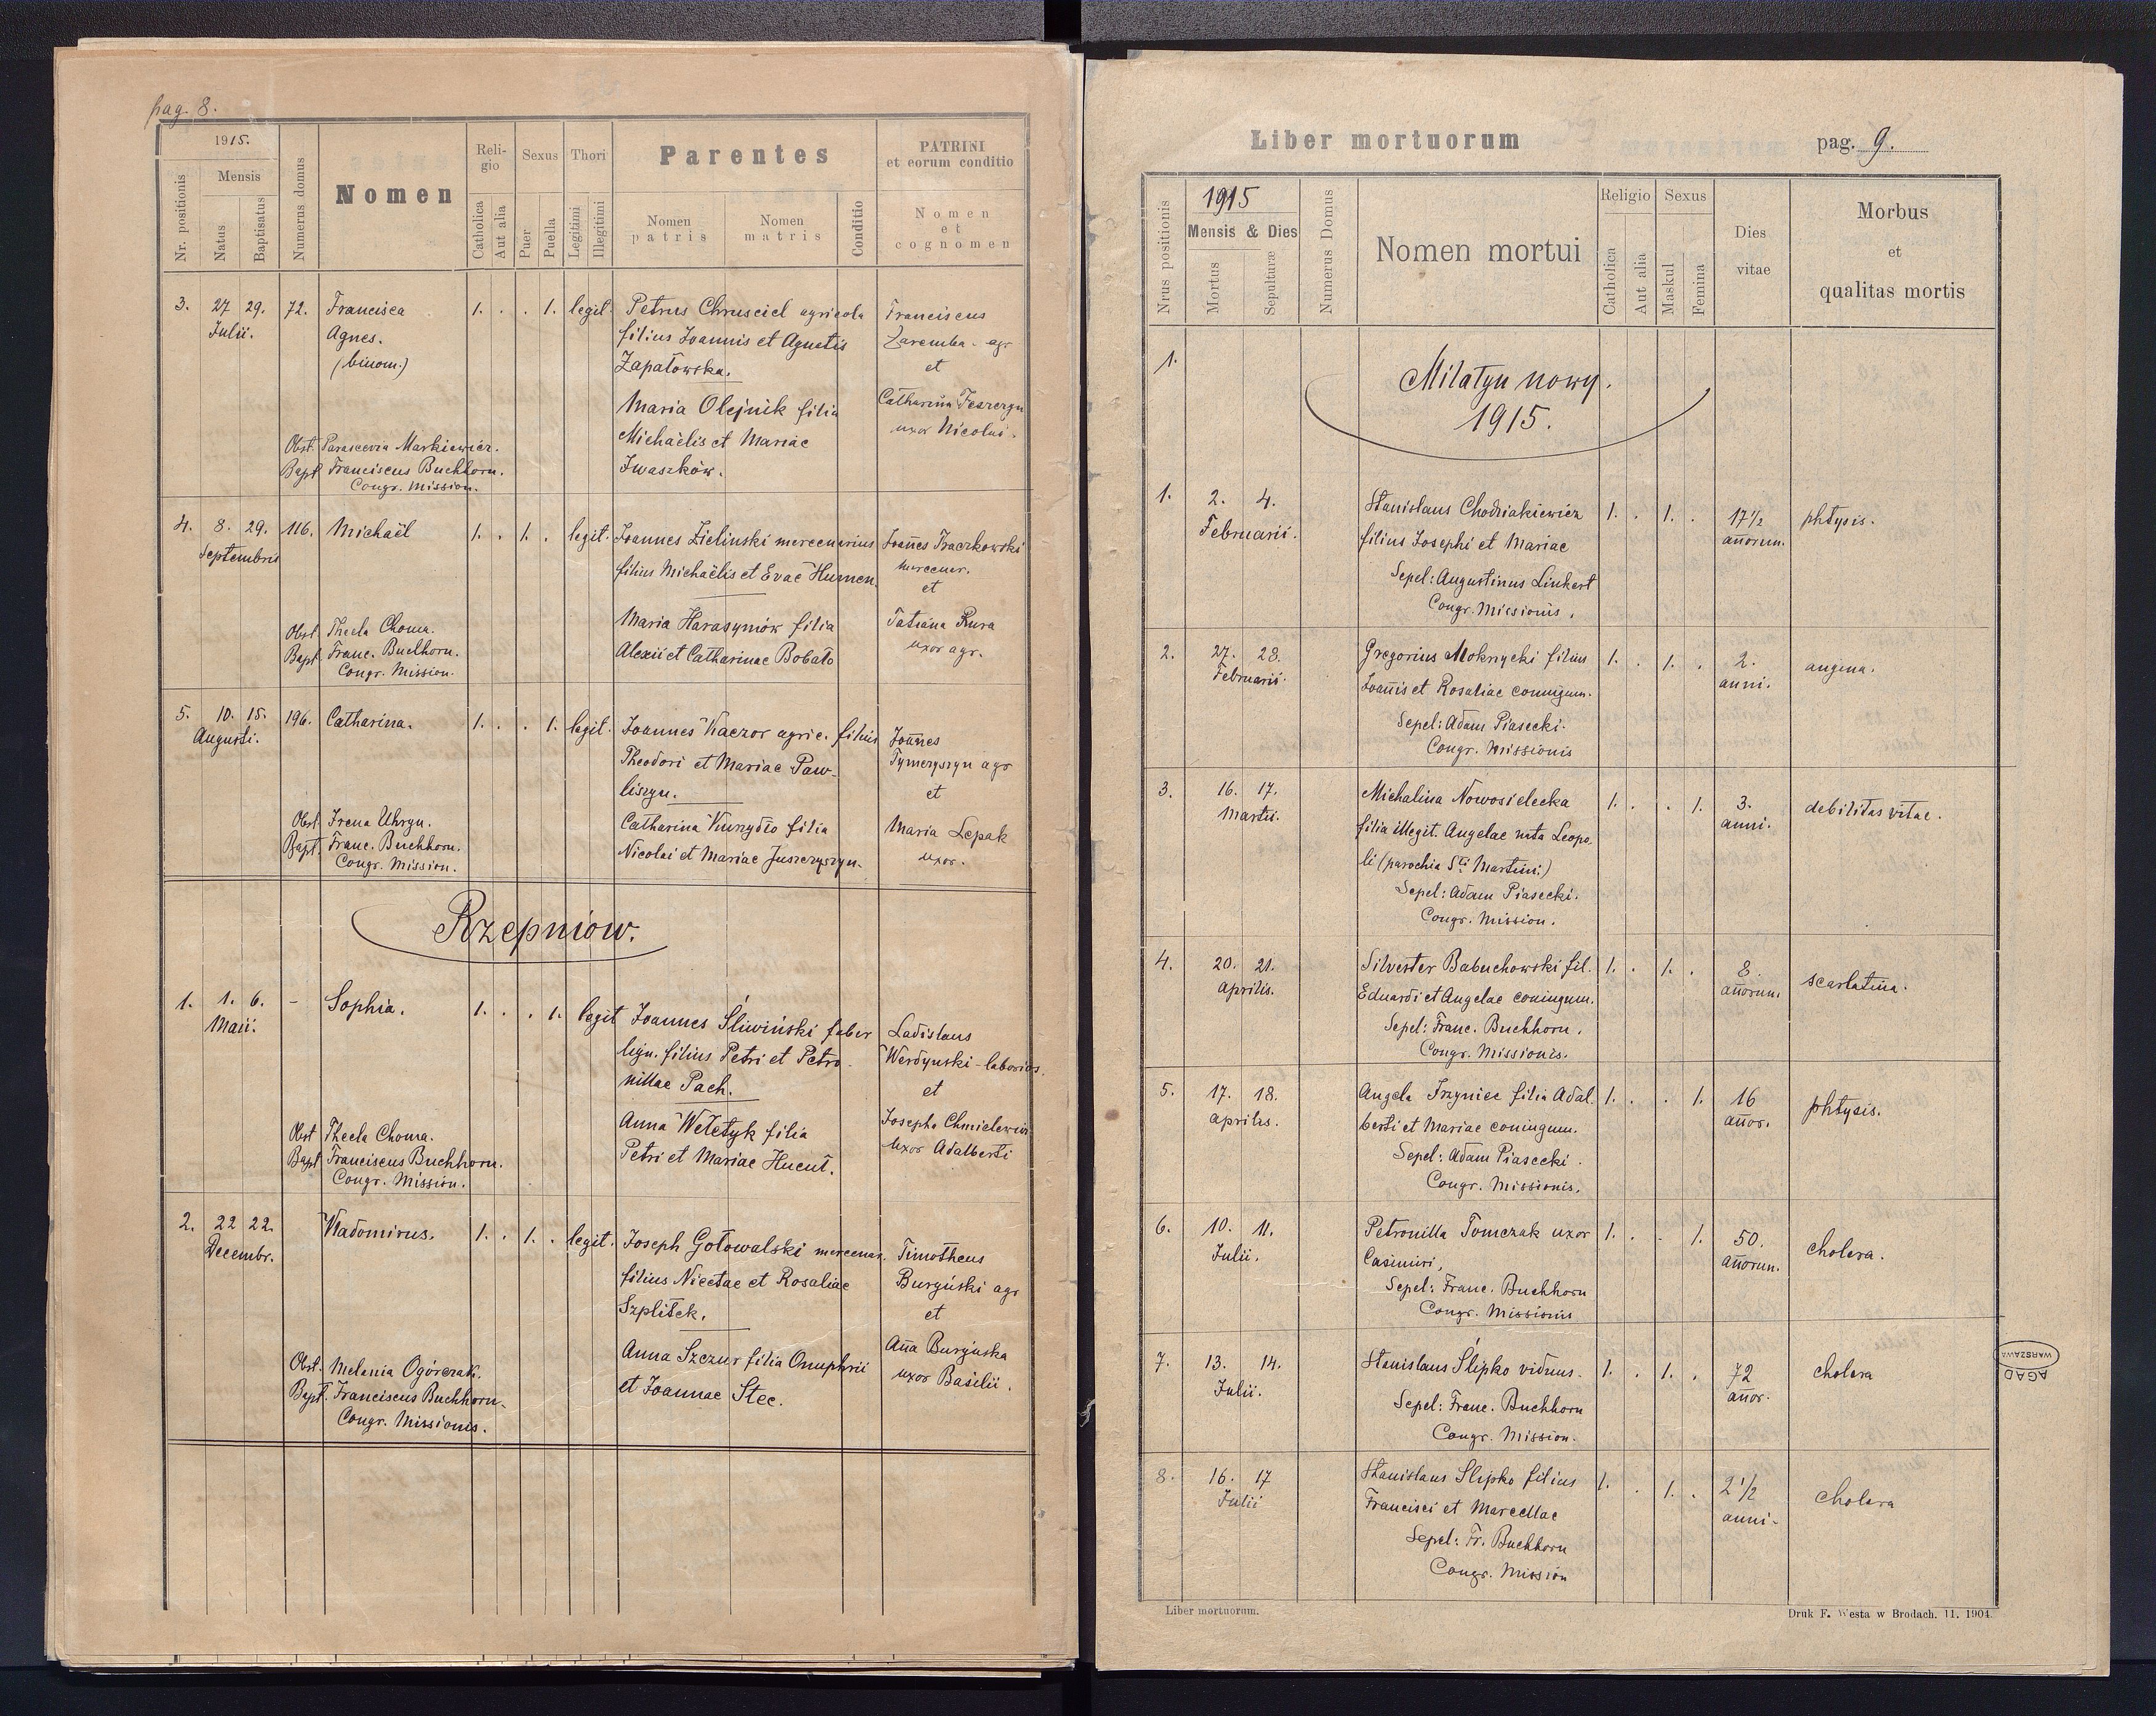 pag. 8.
1915.
Nr. positionis
Mensis
Natus
Baptisatus
Numerus domus
Nomen
Religio
Catholica
Aut alia
Sexus
Puer
Puella
Thori
Legitimi
Illegitimi
Parentes
Nomen patris
Nomen matris
Conditio
PATRINI
et eorum conditio
Nomen
et
cognomen
3. 27 29. 72. Francisca 1. . . 1. legit. Petrus Chrusciel agricola Franciscus
Julii. Agnes. filius Joannis et Agnetis Zaremba - agr
(binom.) Zapałowska. et
Maria Olejnik filia Catharina
Michaëlis et Mariae uxor Nicolai.
Obst. Parascevia Markiewicz. Iwaszków.
Bapt Franciscus Buchhorn.
Congr. Mission.
4. 8. 29. 116. Michaël 1. . 1. . legit. Joannes Zieliński mercenarius Joannes Traczkowski
Septembris filius Michaëlis et Evae Humen. mercenar.
et
Maria Harasymów filia Tatiana Rura
Obst Thecla Choma. Alexii et Catharinae Bobato uxor agr.
Bapt Franc. Buchhorn.
Congr. Mission.
5. 10. 15. 196. Catharina. 1. . . 1. legit. Joannes Kaczor agric. filius Joannes
Augusti. Theodori et Mariae Paw- Tymczyszyn agr
liszyn. et
Obst. Irena Uhryn. Catharina filia Maria Lepak
Bapt. Franc. Buchhorn. Nicolai et Mariae Juszczyszyn. uxor.
Congr. Mission.
Rzepniów.
1. 1. 6. - Sophia. 1. . . 1. legit Joannes Śliwiński faber Ladislaus
Maii. lign. filius Petri et Petro- Werdynski - laborios.
nillae Pach. et
Obst Thecla Choma. Anna Wełetyk filia Josepha
Bapt Franciscus Buchhorn. Petri et Mariae Hucuł. uxor Adalberti
Congr. Mission.
2. 22 22. Wladomirus. 1. . 1. . legit. Joseph Gołowalski mercenar. Timotheus
Decembr. filius Nicetae et Rosaliae Burgiński agr
Szplitek. et
Obst. Melania Ogórczak. Anna Szczur filia Onuphrii Anna Burgińska
Bapt. Franciscus Buchhorn. et Joannae Stec. uxor Basilii.
Congr. Missionis.
Liber mortuorum
pag. 9.
Nrus positionis
1915
Mensis & Dies
Mortus
Sepulturæ
Numerus Domus
Nomen mortui
Religio
Catholica
Aut alia
Sexus
Maskul
Femina
Dies
vitae
Morbus
et
qualitas mortis
1.
Milatyn nowy.
1915.
1. 2. 4. Stanislaus Chodziakiewicz 1. . 1. . 17 1/2 phtysis.
Februarii. filius Josephi et Mariae annorum.
Sepel: Augustinus Linkert
Congr. Missionis.
2. 27. 28. Gregorius Mokrzycki filius 1. . 1. . 2. angina.
Februarii. Joannis et Rosaliae coniugum. anni.
Sepel: Adam Piasecki.
Congr. Missionis
3. 16. 17. Michalina Nowosielecka 1. . . 1. 3. debilitas vitae.
Martii. filia illegit. Angelae nata Leopo- anni.
li (parochia Sti Martini)
Sepel: Adam Piasecki.
Congr. Mission.
4. 20. 21. Silvester Babuchowski fil. 1. . 1. . 8. scarlatina.
Aprilis. Eduardi et Angelae coniugum. annorum.
Sepel: Franc. Buchhorn.
Congr. Missionis.
5. 17. 18. Angela Trzyniec filia Adal- 1. . . 1. 16 phtysis.
Aprilis. berti et Mariae coniugum. annor.
Sepel: Adam Piasecki.
Congr. Missionis.
6. 10. 11. Petronilla Tomczak uxor 1. . . 1. 50. cholera.
Julii. Casimiri, annorum.
Sepel: Franc. Buchhorn
Congr. Missionis
7. 13. 14. Stanislaus Ślipko viduus. 1. . 1. . 72 cholera
Julii. Sepel: Franc. Buchhorn annor.
Congr. Mission.
8. 16. 17 Stanislaus Slipko filius 1. . 1. . 2 1/2 cholera
Julii Francisci et Marcellae anni.
Sepel: Fr. Buchhorn
Congr. Mission
Liber mortuorum.
Druk F. Westa w Brodach. 11. 1904.
AGAD
WARSZAWA